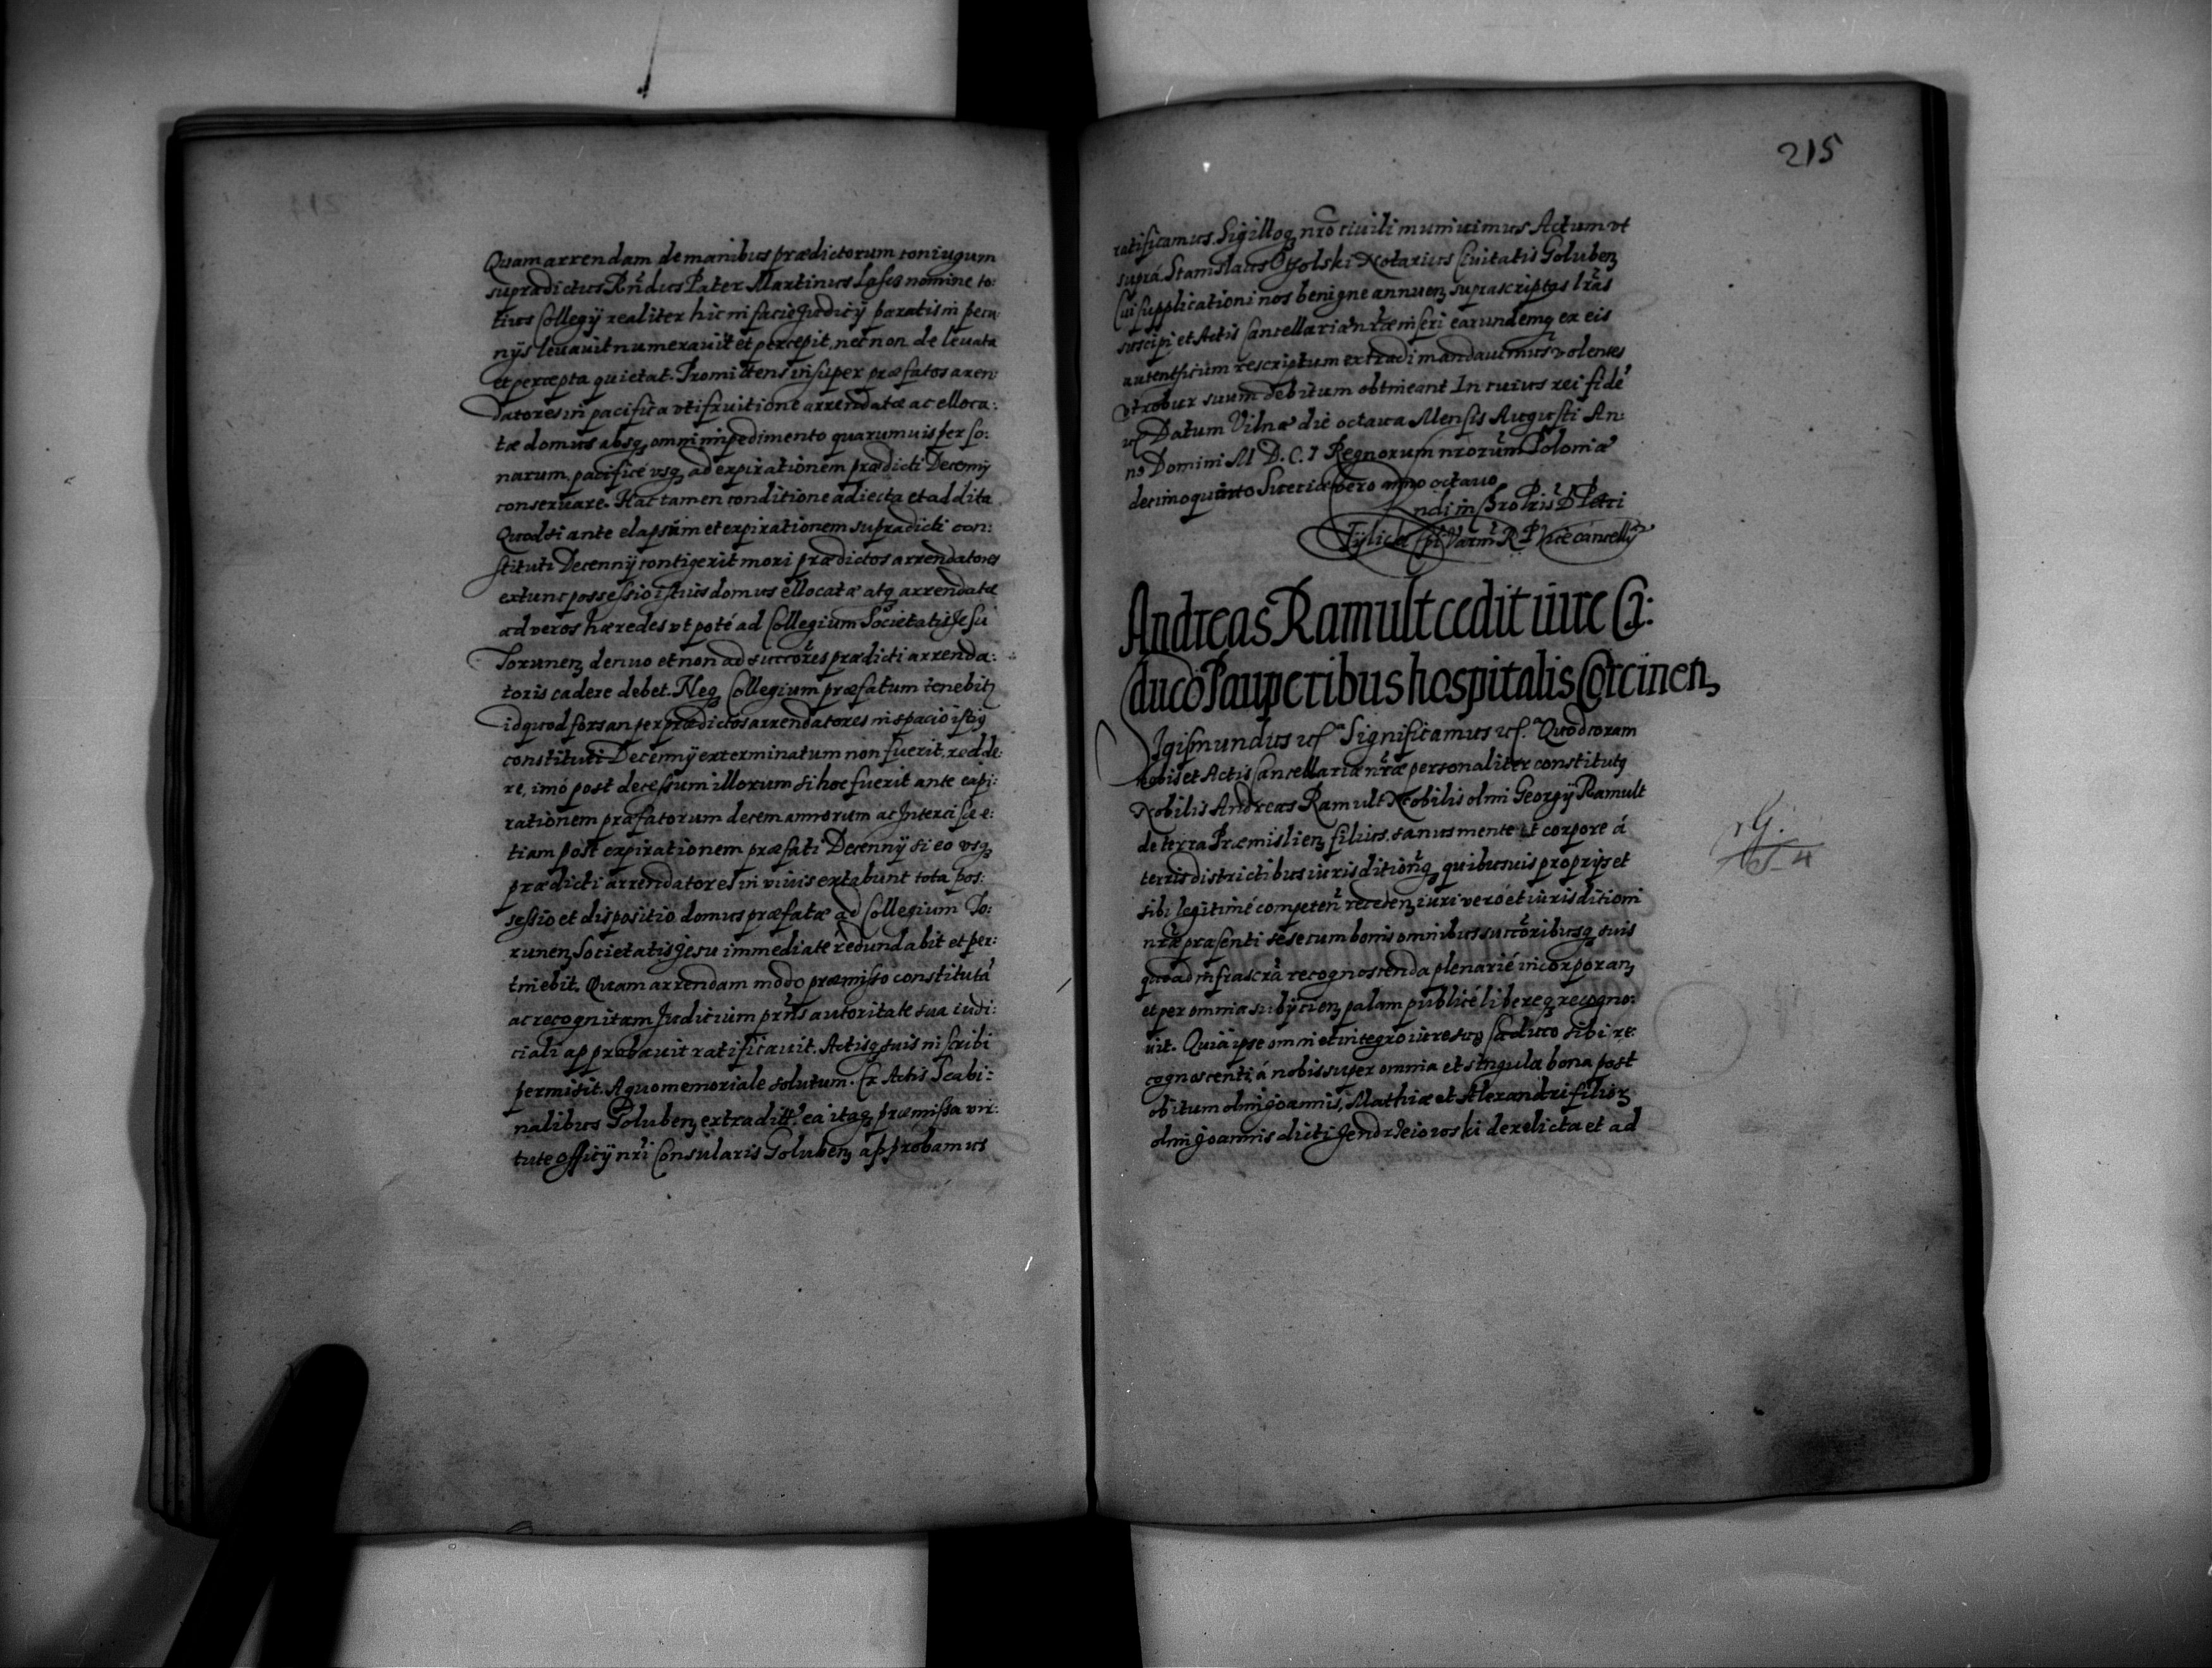 Quam arrendam de manibus prædictorum coniugum
supradictus Rñdus Pater Martinus nomine to:
tius Collegÿ realiter hic in facie Judicÿ paratis in pecu
nÿs leuauit numerauit et percepit, nec non de leuata
et percepta quietat. Promittens insuper præfatos aren
datores in pacifica vtifruitione arrendatæ ac elloca:
tæ domus absq omni impedimento quarumuis perso:
narum, pacificé vsq ad expirationem prædicti Decenny
conseruare. Hac tamen conditione adiecta et addita
Quod si ante elapsum et expirationem supradicti con:
stituti Decennÿ contigerit mori prædictos arrendatores
extunc possessio istius domus ellocatæ atq arrendatæ
ad veros hæredes vt poté ad Collegium Societatis Jesu
Torunen denuo et non ad succores prædicti arrenda:
toris cadere debet. Neq Collegium præfatum tenebit
id quod forsan per prædictos arrendatores in spacio istiq
constituti Decennÿ exterminatum non fuerit, redde:
re, imó post decessum illorum si hoc fuerit ante expi:
rationem præfatorum decem annorum ac e:
tiam post expirationem præfati Decennÿ si eo vsq
prædicti arrendatores in viuis extabunt tota pos:
sessio et dispositio domus præfatæ ad Collegium To:
runen Societatis Jesu immediate redundabit et per:
tinebit. Quam arrendam modo præmisso constitutá
ac recognitam Judicium prñs autoritate sua iudi:
ciali approbauit ratificauit. Actisq suis inscribi
permisit. A quo memoriale solutum. Ex Actis Scabi:
nalibus Goluben extradit. ea itaq præmissa vir:
tute officÿ nri Consularis Goluben approbamus
215
ratificamus. Sigilloq nrõ ciuili muniuimus Actum vt
supra. Stanislaus Notarius Ciuitatis Goluben
Cui supplicationi nos benigne annuen suprascriptas lrãs
suscipi et Actis Cancellariæ nrãe inseri earundemq ex eis
autenticum rescriptum extradi mandauimus volentes
vt robur suum debitum obtineant In cuius rei fidé
Datum Vilnæ die octaua Mensis Augusti An:
no Domini M D. C. I Regnorum nrorum Poloniæ
decimoquarto Sueciæ vero anno octauo
R P D Petri
Tÿlicki Epi Varm R P Vicecancellÿ
Andreas Ramult cedit iure Ca:
duco Pauperibus hospitalis Corcinen
Sigismundus Significamus Quod coram
nobis et Actis Cancellariæ nræ personaliter constitutq
Nobilis Andreas Ramult Nobilis olmi Georgÿ Ramult
de terra Præmislien filius, sanus mente et corpore á
terris districtibus iurisditionq quibusuis proprÿs et
sibi legitimé competen receden iuri veró et iurisditioni
nrãe præsenti sese cum bonis omnibus succoribusq suis
quoad infrascrã recognoscenda plenarié incorporan
et per omnia subÿcien palam publicé libereq recogno:
uit. Quia ipse omni et integro iure suo Caduco sibi re:
cognoscenti á nobis super omnia et singula bona post
obitum olmi Joannis, Mathiæ et Alexandri filior
olmi Joannis dicti derelicta et ad